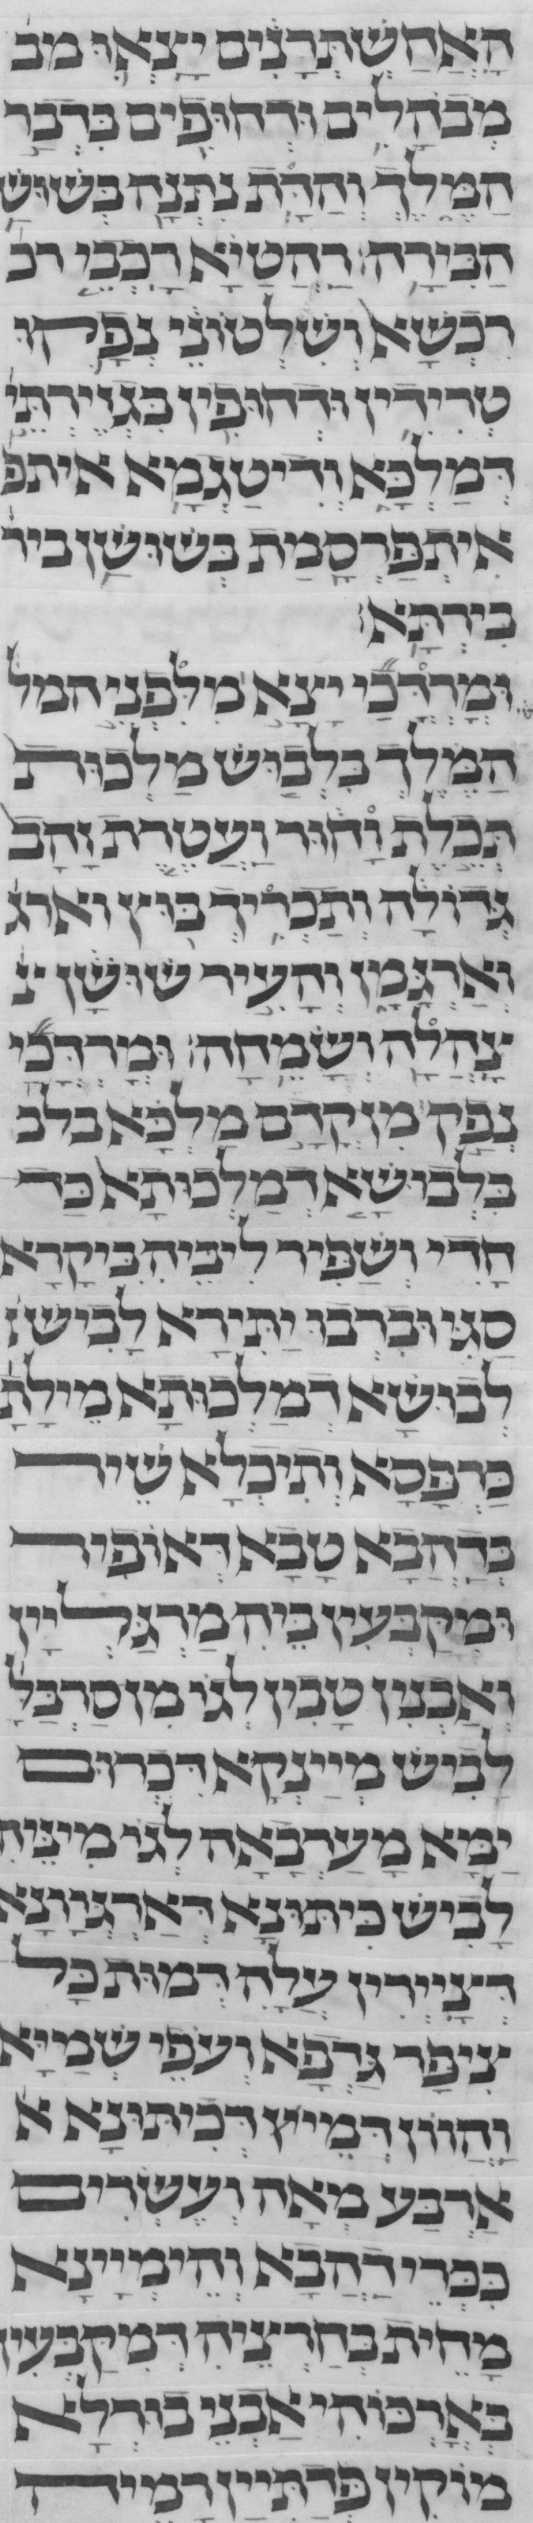 הָאֲחַשְׁתְּרָנִים יָצְאוּ מב
מְבֹהָלִים וּדְחוּפִים בִּדְבַר
הַמֶּלֶךְ וְהַדָּת נִתְּנָה בְּשׁוּשַׁ
הַבִּירָה׃ רַהֲטַיָּא רָכְבֵי רכ
רִכְשָׁא וְשִׁלְטוֹנֵי נְפָקוּ
טְרִידִין וּדְחוּפִין בִּגְזֵירְתֵּי
דְּמַלְכָּא וְדִיטַגְמָא איתפ
אִיתְפַּרְסָמַת בְּשׁוּשַׁן ביר
בִּירְתָּא׃
וּמָרְדֳּכַי יָצָא מִלִּפְנֵי המל
הַמֶּלֶךְ בִּלְבוּשׁ מַלְכוּת
תְּכֵלֶת וָחוּר וַעֲטֶרֶת זָהָב
גְּדוֹלָה וְתַכְרִיךְ בּוּץ וארג
וְאַרְגָּמָן וְהָעִיר שׁוּשָׁן צ
צָהֲלָה וְשָׂמֵחָה׃ וּמָרְדֳּכַי
נְפַק מִן קֳדָם מַלְכָּא בלב
בִּלְבוּשָׁא דְמַלְכוּתָא כַּד
חָדֵי וְשַׁפִּיר לִיבֵּיהּ בִּיקָרָא
סַגִּי וּבִרְבוּ יַתִּירָא לָבִישׁ
לְבוּשָׁא דְמַלְכוּתָא מֵילָתָ
כַּרְפָּסָא וְתִיכְלָא שֵׁיר
בְּדַהֲבָא טָבָא דְּאוֹפִיר
וּמְקַבְּעִין בֵּיהּ מַרְגָּלְיָין
וְאַבְנִין טָבִין לְגוֹ מִן סַרְבַּלָ
לָבִישׁ מְיַינְקָא דִּכְרוּם
יַמָּא מַעַרְבָאָה לְגוֹ מִינֵּיהּ
לָבִישׁ כִּיתּוּנָא דְּאַרְגְּוָונָא
דְּצָיְירִין עֲלָהּ דְּמוּת כָּל
צִיפַּר גַּדְפָּא וְעֹפֵי שְׁמַיָּא
וַהֲווֹן דְּמֵיין דְּכִיתּוּנָא א
אַרְבַּע מְאָה וְעֶשְׂרִים
כַּכְּרֵי דַהֲבָא וְהֵימְיָינָא
מָחֵית בְּחַרְצֵיהּ דִּמְקַבְּעִין
בְּאַרְכּוּהִי אַבְנֵי בוּרְלָא
מוֹקִין פַּרְתְּיֵין רמיין